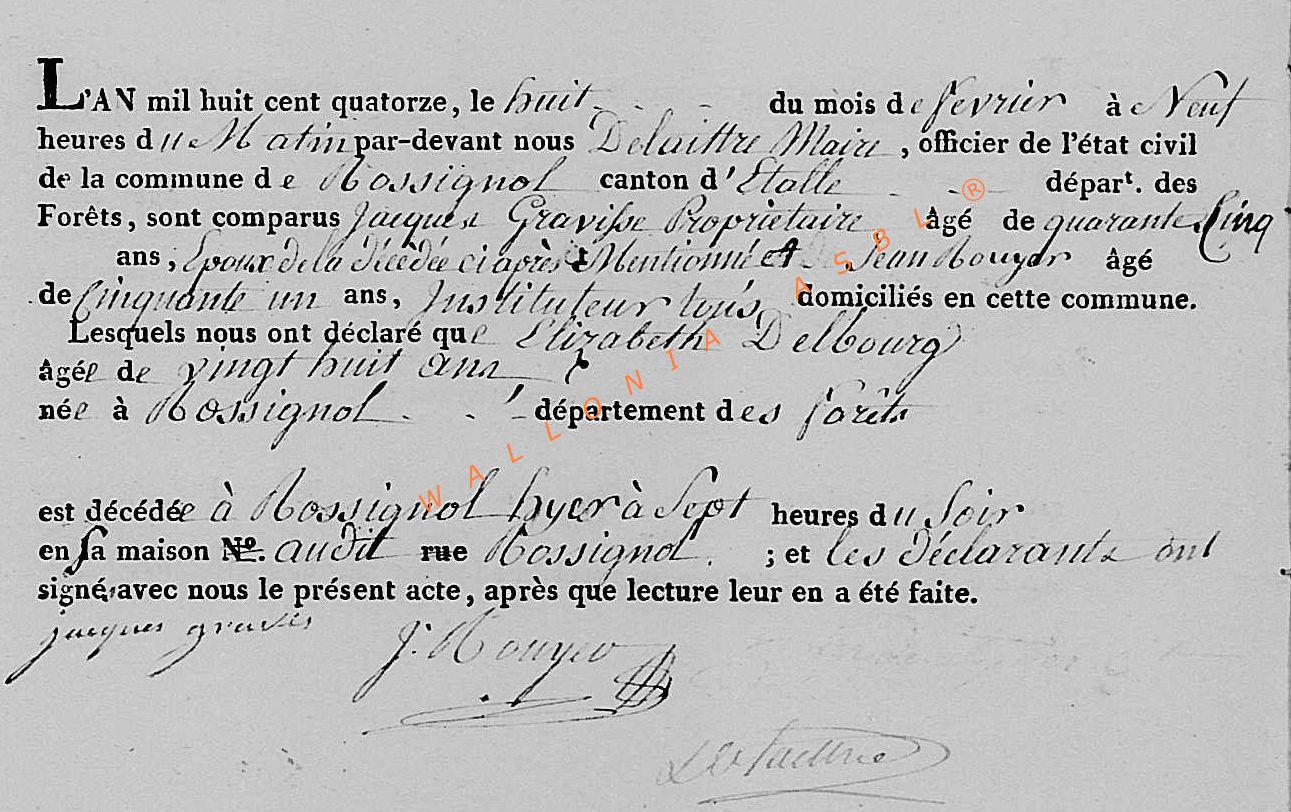 L'AN mil huit cent quatorze, le huit du mois de fevrier à Neuf
heures du Matin par-devant nous Delaittre Maire, officier de l'état civil
de la commune de Rossignol canton d'Etalle départ. des
Forêts, sont comparus Jacques Gravisse Proprietaire âgé de quarante Cinq
ans, Epoux de la décédée ci après Mentionné et Jean Rouyer âgé
de Cinquante un ans, Instituteur tous domiciliés en cette commune.
Lesquels nous ont déclaré que Elizabeth Delbourg
âgée de vingt huit ans
née à Rossignol département des forêts
est décédée à Rossignol hyer à Sept heures du Soir
en sa maison No. audit rue Rossignol ; et les déclarants ont
signé avec nous le présent acte, après que lecture leur en a été faite.
jacques gravis
J. Rouyer
WALLONIA ASBL ®